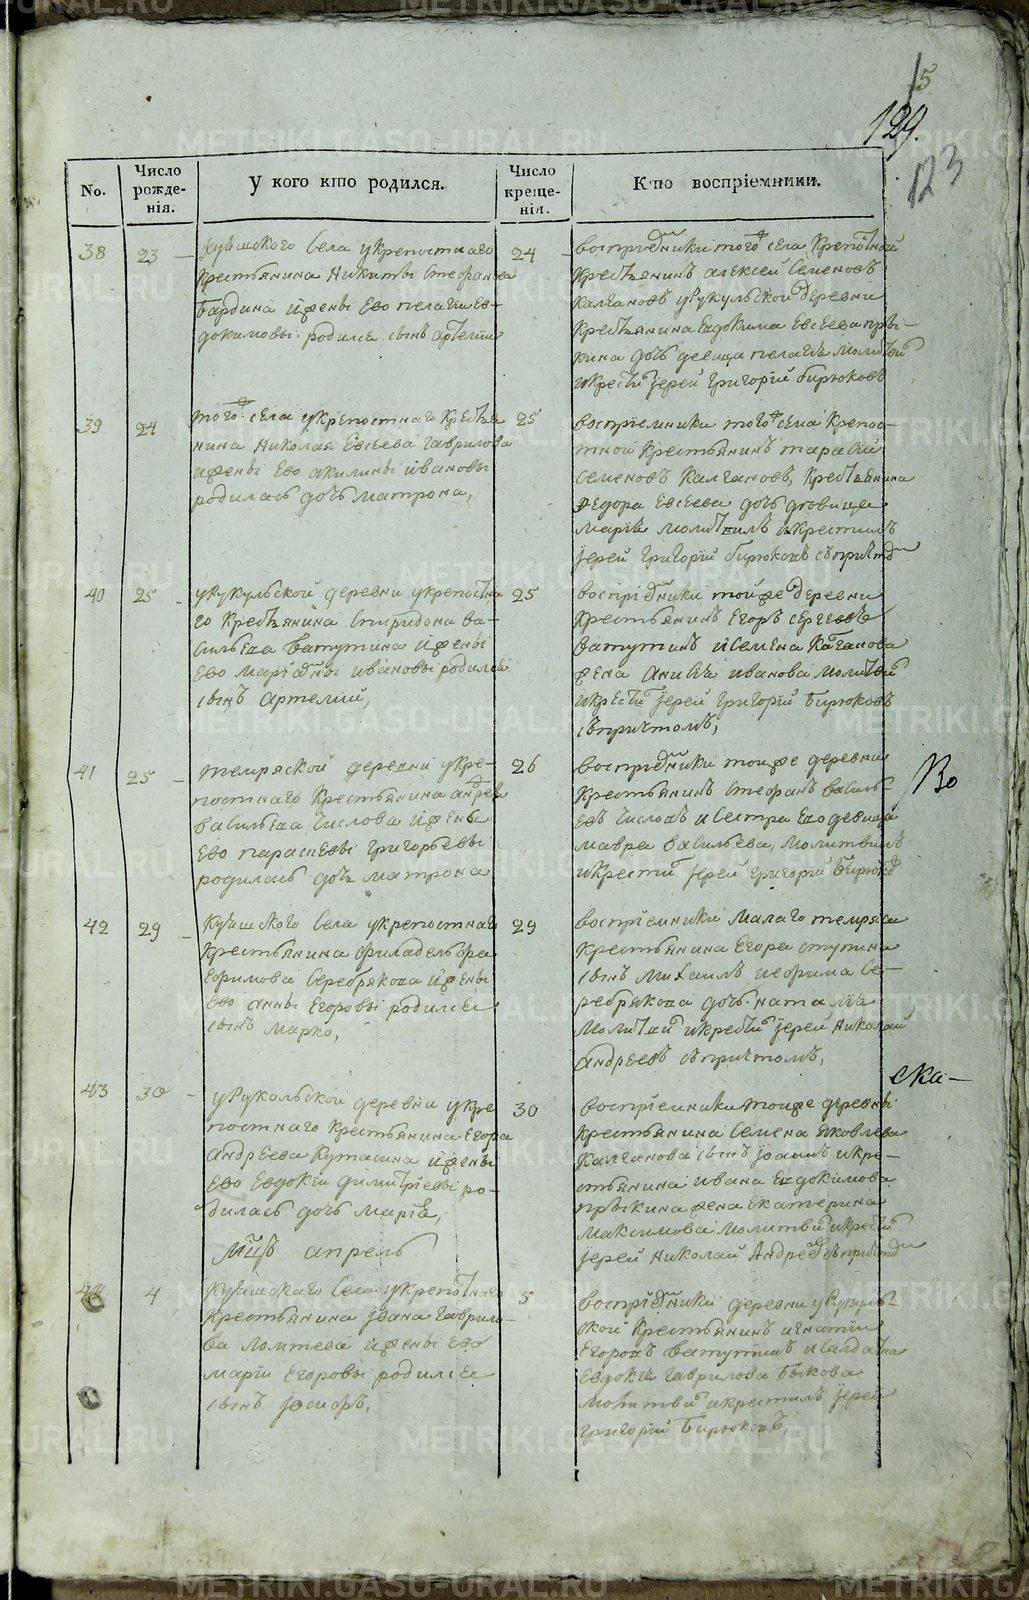 15
129.
123
No.
Число рожденія.
У кого кто родился.
Число крещенія.
Кто воспріемники.
38
23
Куяшского Села укрепостнаго
крестьянина Никиты Стефанова
Бардина ижены Ево пелагіи Ев-
докимовы родился сынъ Артемій
24
воспріемники того села крепостной
крестьянинъ алексей Семеновъ
калгановъ
крестьянина Евдокима Евсеева
дочь девица пелагія
іерей григорій бирюковъ
39
24
того села укрепостнаго крестья
нина Николая Евсеева гаврилова
ижены Ево акилины ивановы
родилась дочь матрона,
25
воспріемники того села крепос-
тной крестьянинъ тарасій
семеновъ Калгановъ, крестьянина
Федора Евсеева дочь девица
марія молитвилъ икрестилъ
іерей григорій бирюковъ
40
25
урукульской деревни укрепостна
го крестьянина Спиридона ва-
сильева Ватутина ижены
Ево ивановы родился
сынъ Артемій,
25
воспріемники тойже деревни
крестьянинъ Егоръ сергеевъ
Ватутинъ исемена
жена иванова
іерей григорій бирюковъ
спричтомъ,
41
25
темряской деревни укре-
постнаго крестьянина андрея
васильева Числова ижены
Ево парасковьи григорьевы
родилась дочь матрона
26
воспріемники тойже деревни
крестьянинъ Стефанъ василь-
евъ Числовъ исестра Ево девица
мавра васильева, молитвилъ
икрестилъ іерей григорій бирюковъ
Во
42
29
Куяшского Села укрепостнаго
крестьянина филадельфа
Ефимова Серебрякова ижены
Ево анны Егоровы родился
сынъ марко,
29
воспріемники малаго темряса
крестьянина Егора ступина
сынъ михаилъ иефима Се-
ребрякова дочь наталія
іерей николай
андреевъ спричтомъ,
43
30
урукольской деревни укре
постнаго крестьянина Егора
андреева ижены
Ево Евдокіи димитріевы ро-
дилась дочь марія,
30
воспріемники тойже деревни
крестьянина семена яковлева
Калганова сынъ іоаннъ икре-
стьянина ивана Евдокимова
жена екатерина
максимова
іерей николай Андреевъ
ска-
Мцъ апрель
44
4
Куяшскаго Села укрепостнаго
крестьянина іоана гаврило-
ва ломтева ижены Ево
маріи Егоровы родился
сынъ іосифъ.
5
воспріемники деревни уруkуль-
ской крестьянинъ игнатій
Егоровъ Ватутинъ исалдатка
Евдокія гаврилова Быкова
икрестилъ іерей
григорій Бирюковъ,
METRIKI.GASO-URAL.RU